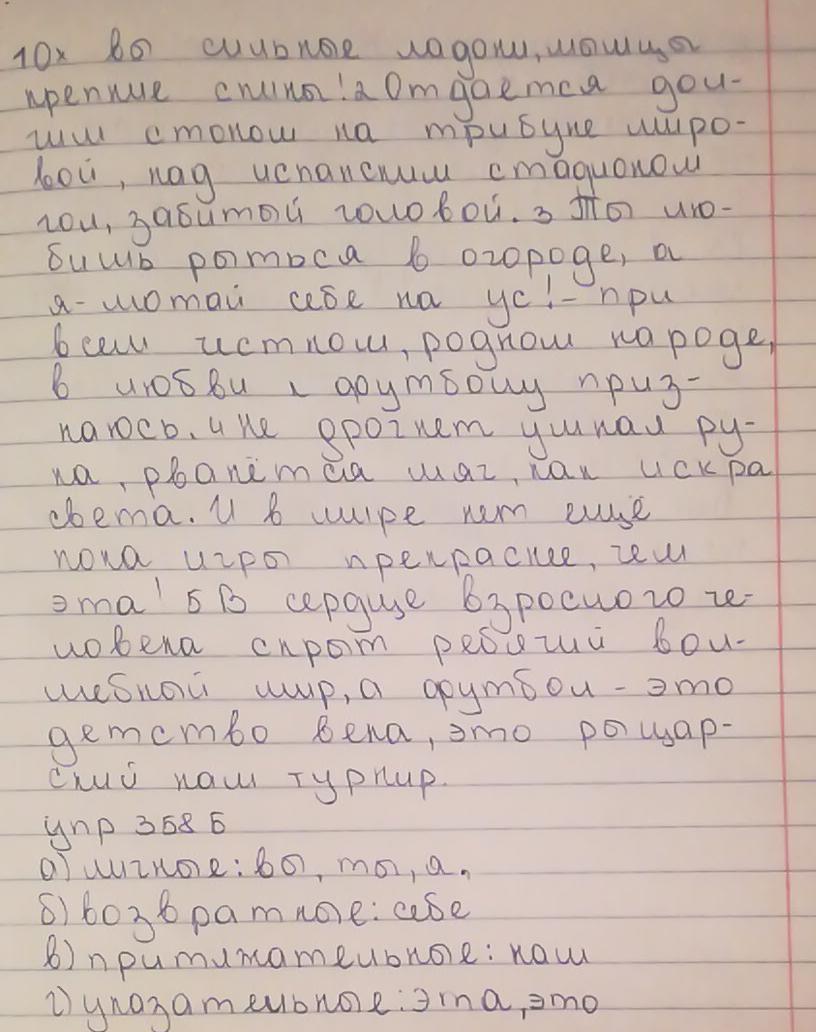 10х вы сильные ладони, мышцы
крепкие спины! 2 Отдается дол-
гим стоном на трибуне миро-
вой, над испанским стадионом
гол, забитый головой. 3 Ты лю-
бишь рыться в огороде, а
я - мотай себе на ус! - при
всем честном, родном народе,
в любви к футболу приз-
наюсь. и не дрогнет чуткая ру-
ка, рванётся мяч, как искра
света. И в мире нет ещё
пока игры прекраснее, чем
эта! 5 В сердце взрослого че-
ловека скрыт ребячий вол-
шебный мир, а футбол - это
детство века, это рыцар-
ский наш турнир.
упр 358 Б
а) личные: вы, ты, я.
б) возвратные: себе
в) притяжательные: наш
г) указательные: эта, это